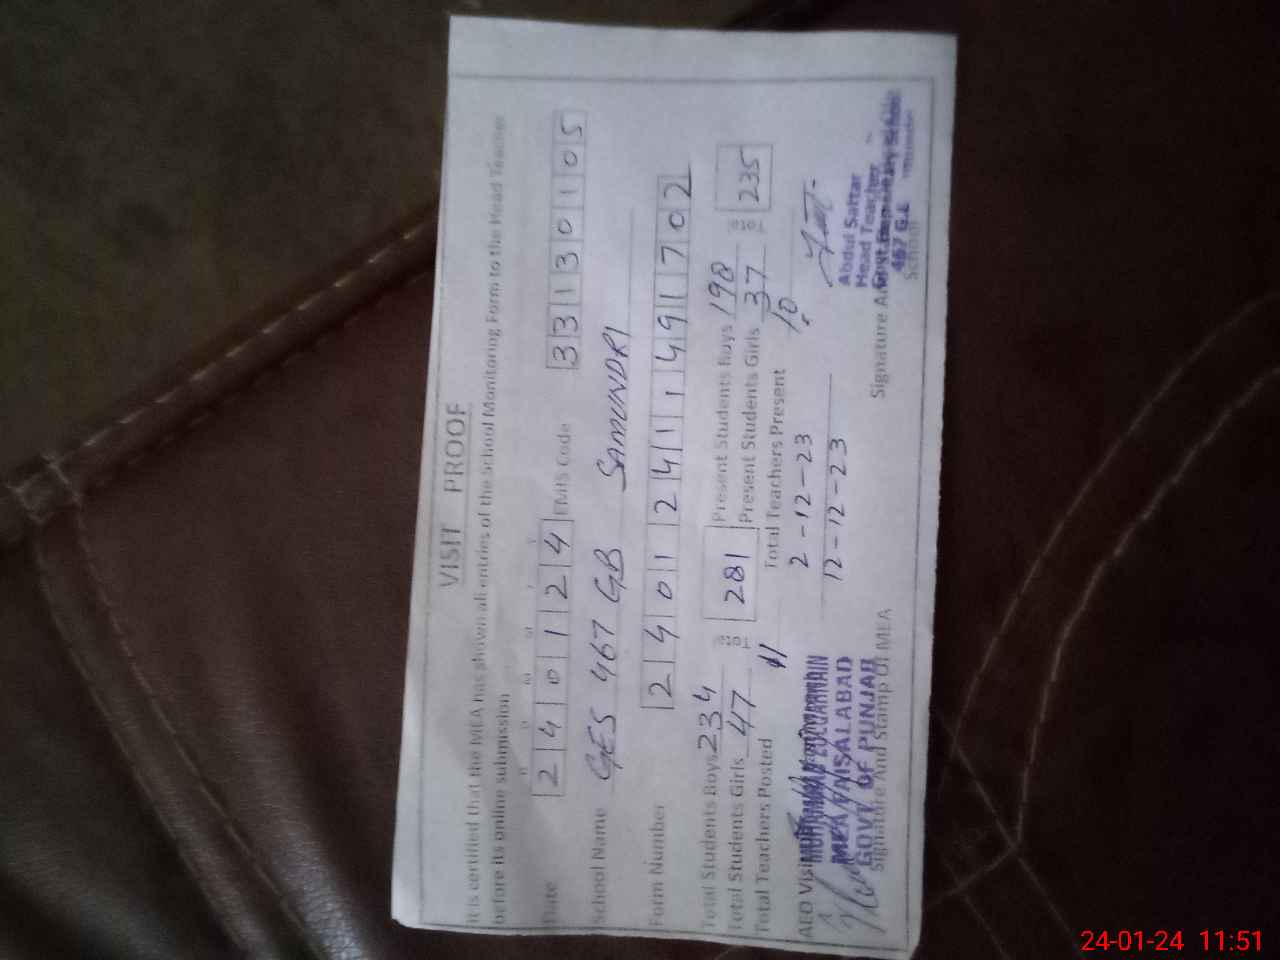 VISIT PROOF
It is certified that the MEA has shown all entries of the School Monitoring Form to the Head Teacher
before its online submission
D D M M Y Y
Date 2 4 0 1 2 4 EMIS Code 3 3 1 3 0 1 0 5
School Name GES 467 GB SAMUNDRI
Form Number 2 4 0 1 2 4 1 1 4 9 1 7 0 2
Total Students Boys 234 Total 281 Present Students Boys 198 Total 235
Total Students Girls 47 Present Students Girls 37
Total Teachers Posted 11 Total Teachers Present 10
AEO Visit 2-12-23
12-12-23
MUHAMMAD ZULQARNAIN
MEA FAISALABAD
GOVT. OF PUNJAB
Signature And Stamp Of MEA
Abdul Sattar
Head Teacher
Govt. Elementary School
467 G.B
Signature School
24-01-24 11:51